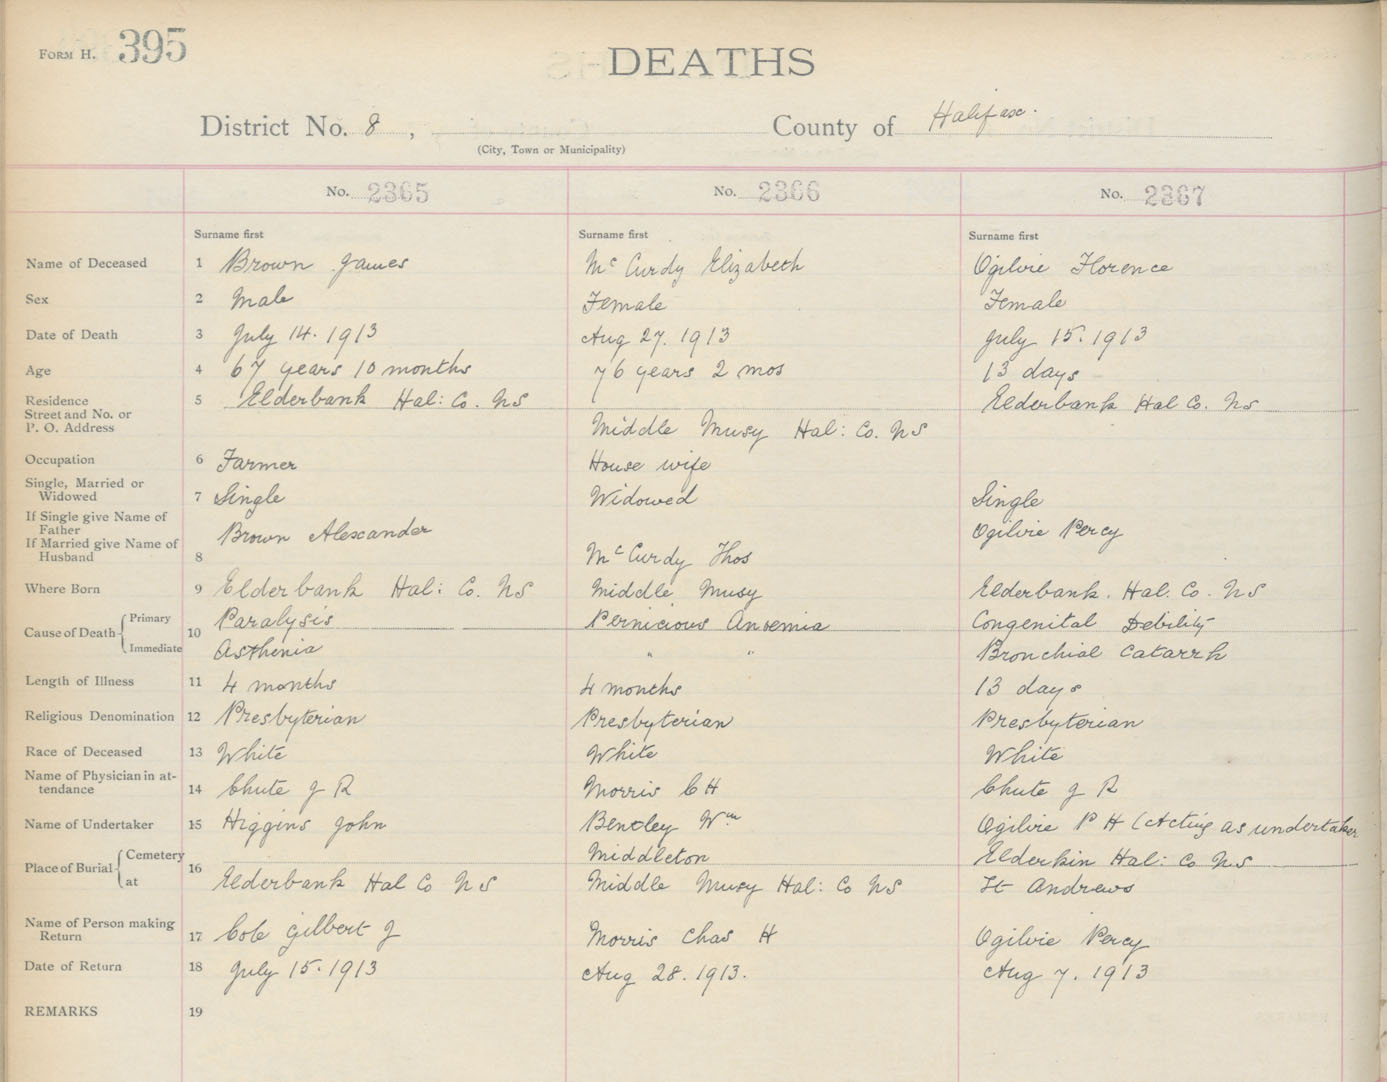 FORM H. 395
DEATHS
District No. 8 , County of Halifax.
(City, Town or Municipality)
No. 2365 No. 2366 No. 2367
Surname first Surname first Surname first
Name of Deceased 1 Brown James Mc Curdy Elizabeth Ogilvie Florence
Sex 2 Male Female Female
Date of Death 3 July 14. 1913 Aug 27. 1913 July 15. 1913
Age 4 67 years 10 months 76 years 2 mos 13 days
Residence 5 Elderbank Hal: Co. NS Elderbank Hal Co. NS
Street and No. or
P. O. Address Middle Musy Hal: Co. NS
Occupation 6 Farmer House wife
Single, Married or
Widowed 7 Single Widowed Single
If Single give Name of
Father Brown Alexander Ogilvie Percy
If Married give Name of
Husband 8 Mc Curdy Thos
Where Born 9 Elderbank Hal: Co. NS Middle Musy Elderbank. Hal. Co. NS
Primary Paralysis Pernicious Anoemia Congenital Debility
Cause of Death 10
Immediate Asthenia " " Bronchial Catarrh
Length of Illness 11 4 months 4 months 13 days
Religious Denomination 12 Presbyterian Presbyterian Presbyterian
Race of Deceased 13 White White White
Name of Physician in at-
tendance 14 Chute J R Morris C H Chute J R
Name of Undertaker 15 Higgins John Bentley Wm Ogilvie P H (Acting as undertaker
Cemetery Middleton Elderkin Hal: Co NS
Place of Burial 16
at Elderbank Hal Co NS Middle Musy Hal: Co NS St Andrews
Name of Person making
Return 17 Cole Gilbert J Morris Chas H Ogilvie Percy
Date of Return 18 July 15. 1913 Aug 28. 1913. Aug 7. 1913
REMARKS 19